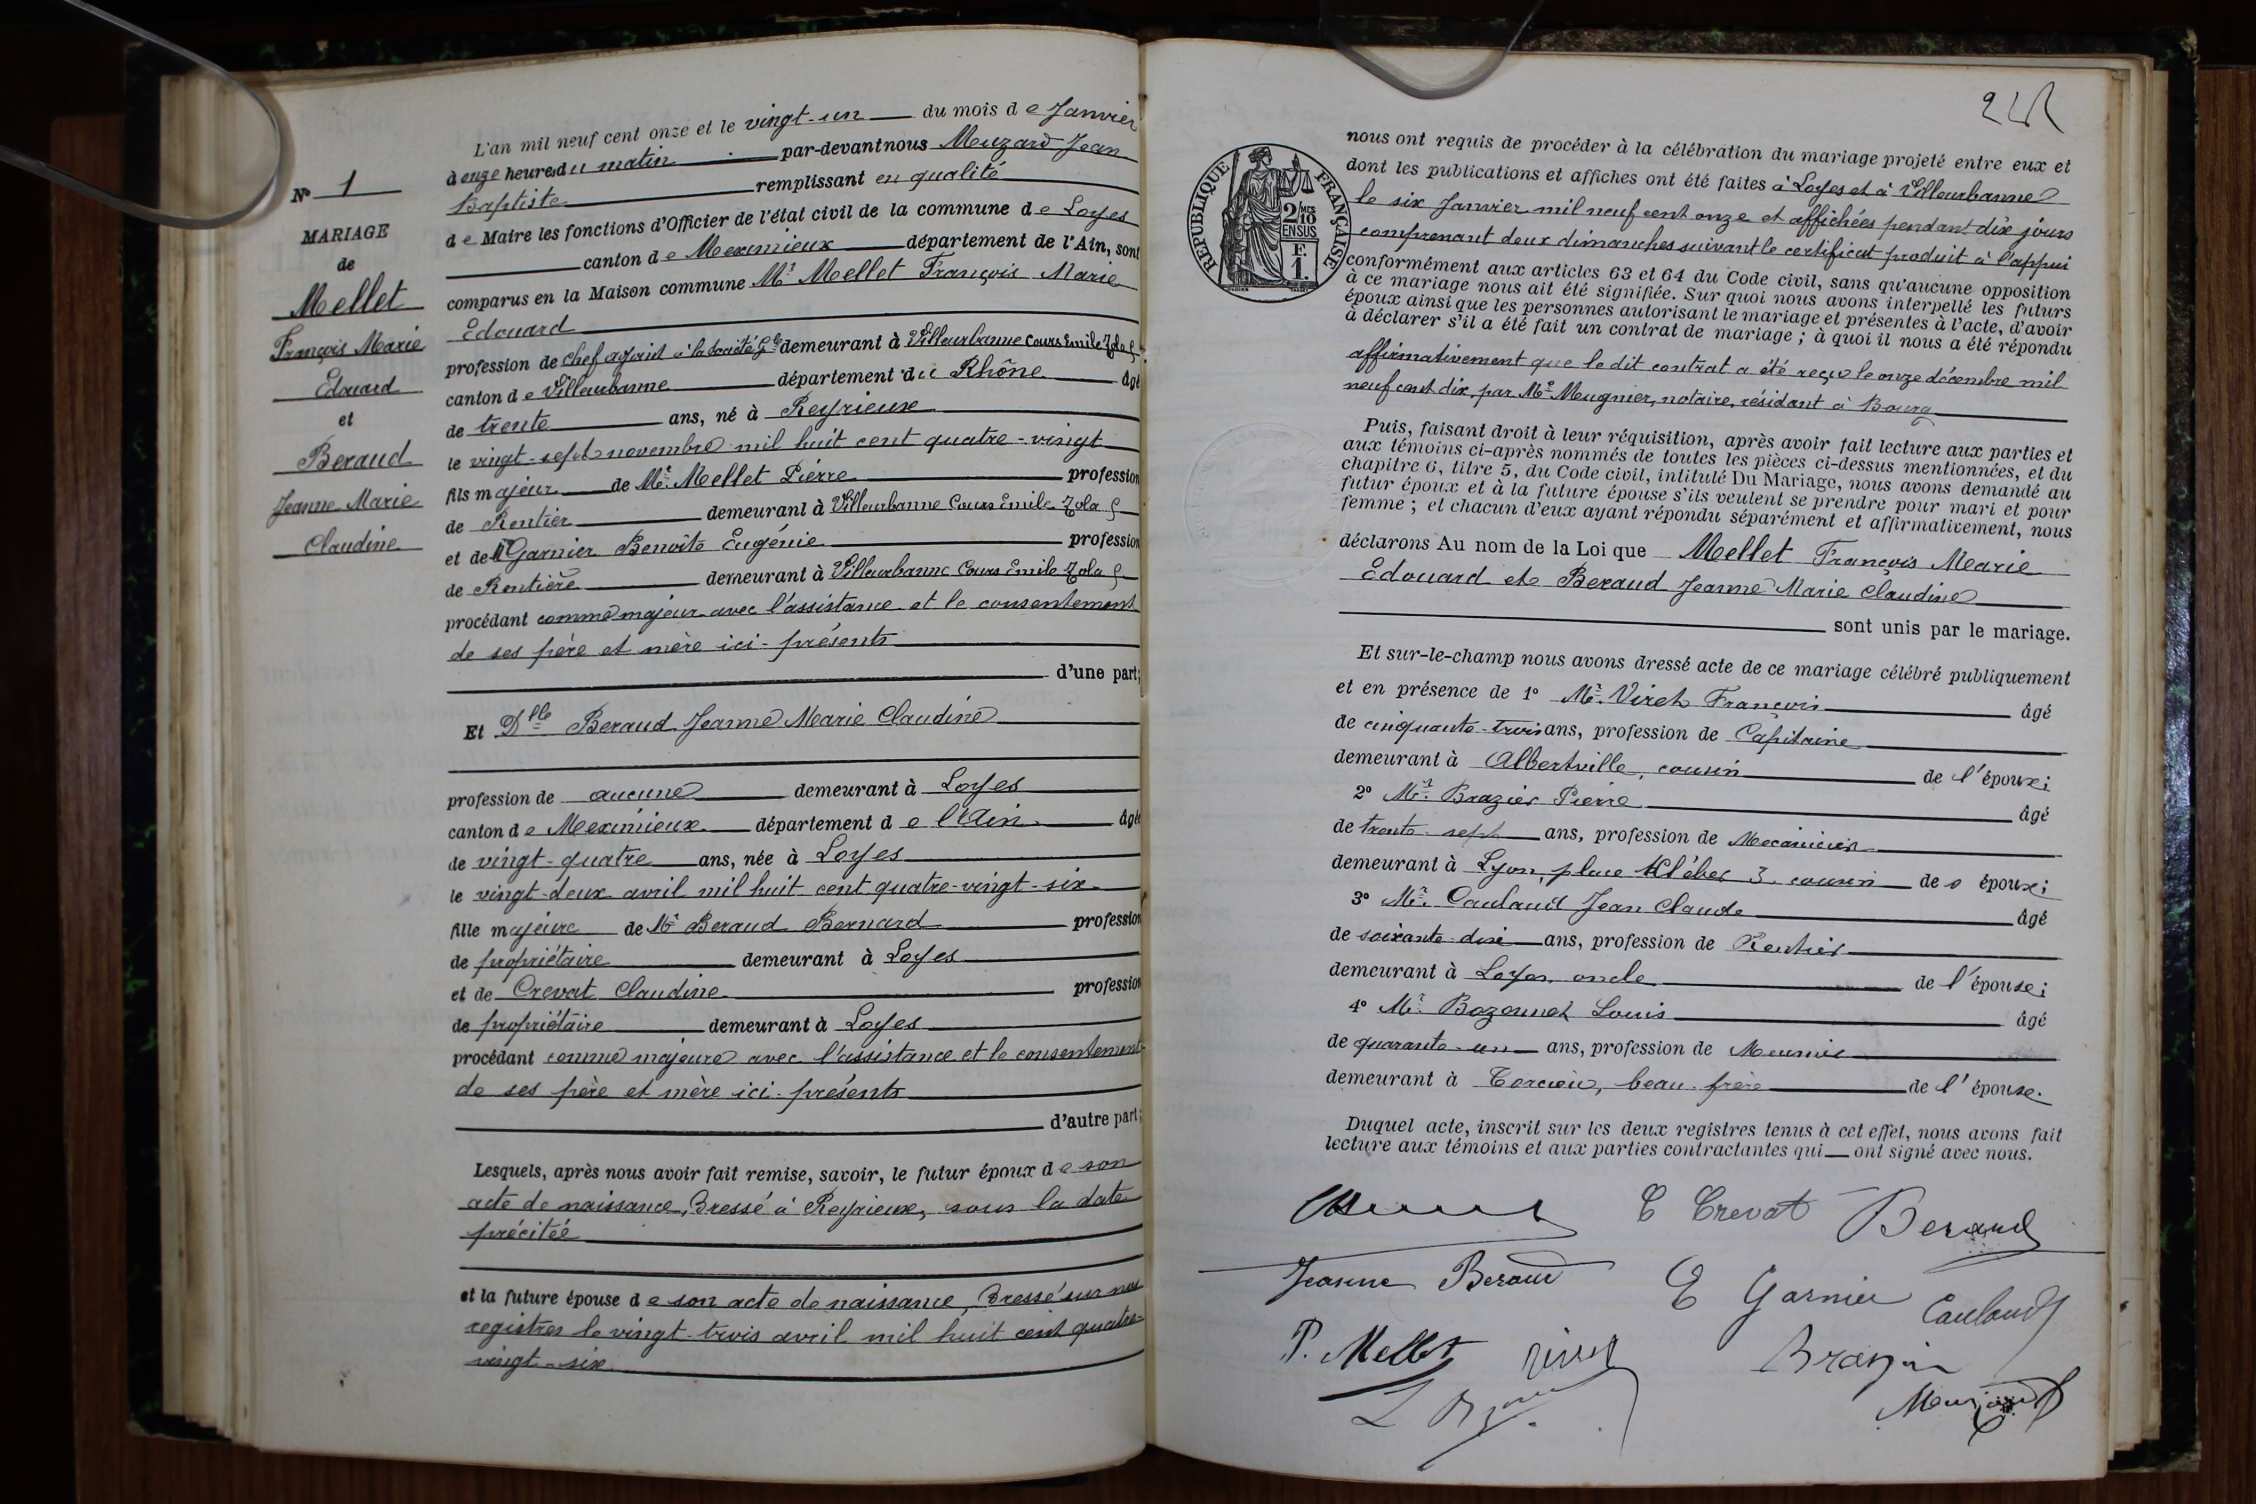 N° 1
MARIAGE
de
Mellet
François Marie
Edouard
et
Beraud
Jeanne Marie
Claudine
L'an mil neuf cent onze et le vingt-un du mois de Janvier
à onze heures du matin par-devant nous Muzard Jean
Baptiste remplissant en qualité
de Maire les fonctions d'Officier de l'état civil de la commune de Loyes
canton de Meximieux département de l'Ain, sont
comparus en la Maison commune Mr Mellet François Marie
Edouard
profession de chef adjoint à la Société Gle demeurant à Villeurbanne Cours Emile Zola 5
canton de Villeurbanne département du Rhône âgé
de trente ans, né à Reyrieux
le vingt-sept novembre mil huit cent quatre-vingt
fils majeur de Mr Mellet Pierre profession
de Rentier demeurant à Villeurbanne Cours Emile Zola 5
et de Garnier Benoîte Eugénie profession
de Rentière demeurant à Villeurbanne Cours Emile Zola 5
procédant comme majeur avec l'assistance et le consentement
de ses père et mère ici présents
d'une part;
Et Dlle Beraud Jeanne Marie Claudine
profession de aucune demeurant à Loyes
canton de Meximieux département de l'Ain âgée
de vingt-quatre ans, née à Loyes
le vingt-deux avril mil huit cent quatre-vingt-six
fille majeure de Mr Beraud Bernard profession
de propriétaire demeurant à Loyes
et de Crevat Claudine profession
de propriétaire demeurant à Loyes
procédant comme majeure avec l'assistance et le consentement
de ses père et mère ici présents
d'autre part;
Lesquels, après nous avoir fait remise, savoir, le futur époux de son
acte de naissance, dressé à Reyrieux, sous la date
précitée
et la future épouse de son acte de naissance, dressé sur nos
registres le vingt-trois avril mil huit cent quatre-
vingt-six
RÉPUBLIQUE FRANÇAISE
2/10 MES
EN SUS
F.
1.
nous ont requis de procéder à la célébration du mariage projeté entre eux et
dont les publications et affiches ont été faites à Loyes et à Villeurbanne
le six Janvier mil neuf cent onze et affichées pendant dix jours
comprenant deux dimanches suivant le certificat produit à l'appui
conformément aux articles 63 et 64 du Code civil, sans qu'aucune opposition
à ce mariage nous ait été signifiée. Sur quoi nous avons interpellé les futurs
époux ainsi que les personnes autorisant le mariage et présentes à l'acte, d'avoir
à déclarer s'il a été fait un contrat de mariage ; à quoi il nous a été répondu
affirmativement que le dit contrat a été reçu le onze décembre mil
neuf cent dix, par Me Mugnier, notaire, résidant à Bourg
Puis, faisant droit à leur réquisition, après avoir fait lecture aux parties et
aux témoins ci-après nommés de toutes les pièces ci-dessus mentionnées, et du
chapitre 6, titre 5, du Code civil, intitulé Du Mariage, nous avons demandé au
futur époux et à la future épouse s'ils veulent se prendre pour mari et pour
femme ; et chacun d'eux ayant répondu séparément et affirmativement, nous
déclarons Au nom de la Loi que Mellet François Marie
Edouard et Beraud Jeanne Marie Claudine
sont unis par le mariage.
Et sur-le-champ nous avons dressé acte de ce mariage célébré publiquement
et en présence de 1° Mr. Viret François âgé
de cinquante-trois ans, profession de Capitaine
demeurant à Albertville, cousin de l'époux;
2° Mr. Brazier Pierre âgé
de trente-sept ans, profession de Mecanicien
demeurant à Lyon, place Kléber 3 cousin de époux;
3° Mr. Caulaud Jean Claude âgé
de soixante-dix ans, profession de Rentier
demeurant à Loyes, oncle de l'épouse;
4° Mr. Bozonnet Louis âgé
de quarante-un ans, profession de Meunier
demeurant à Torcieu, beau-frère de l'épouse.
Duquel acte, inscrit sur les deux registres tenus à cet effet, nous avons fait
lecture aux témoins et aux parties contractantes qui ont signé avec nous.
C Crevat Beraud
Jeanne Beraud E Garnier Caulaud
P. Mellet Viret Brazier
Muzard